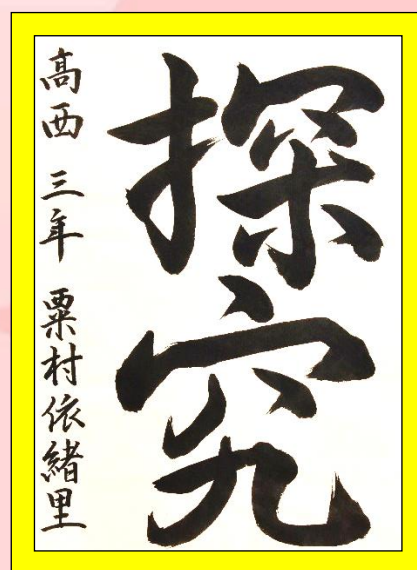 探究
高西 三年 粟村依緒里